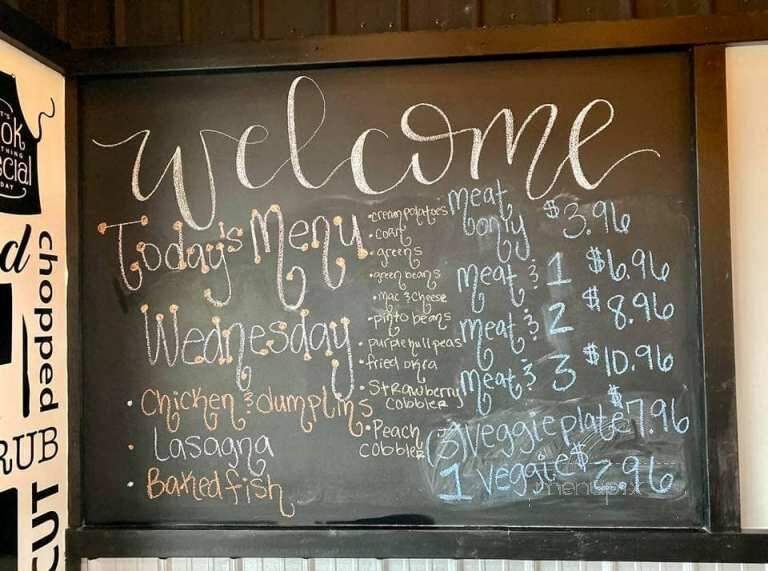 welcome
Today's Menu
Wednesday
• Chicken & dumplins
• Lasagna
• Baked fish
• cream potatoes
• corn
• greens
• green beans
• mac & cheese
• pinto beans
• purple hull peas
• fried okra
• Strawberry
cobbler
• Peach
cobbler
meat only $3.96
meat & 1 $6.96
meat & 2 $8.96
meat & 3 $10.96
(3) veggie plate $7.96
1 veggie $2.96
menupix
ok
THING
ecial
DAY
d
chopped
RUB
CUT